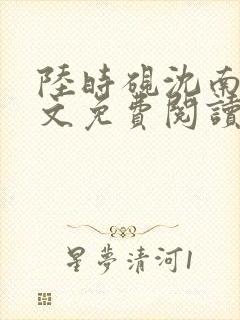 陸時硯沈南
文免費閱讀
星夢清河1